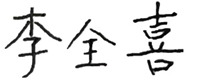 李全喜